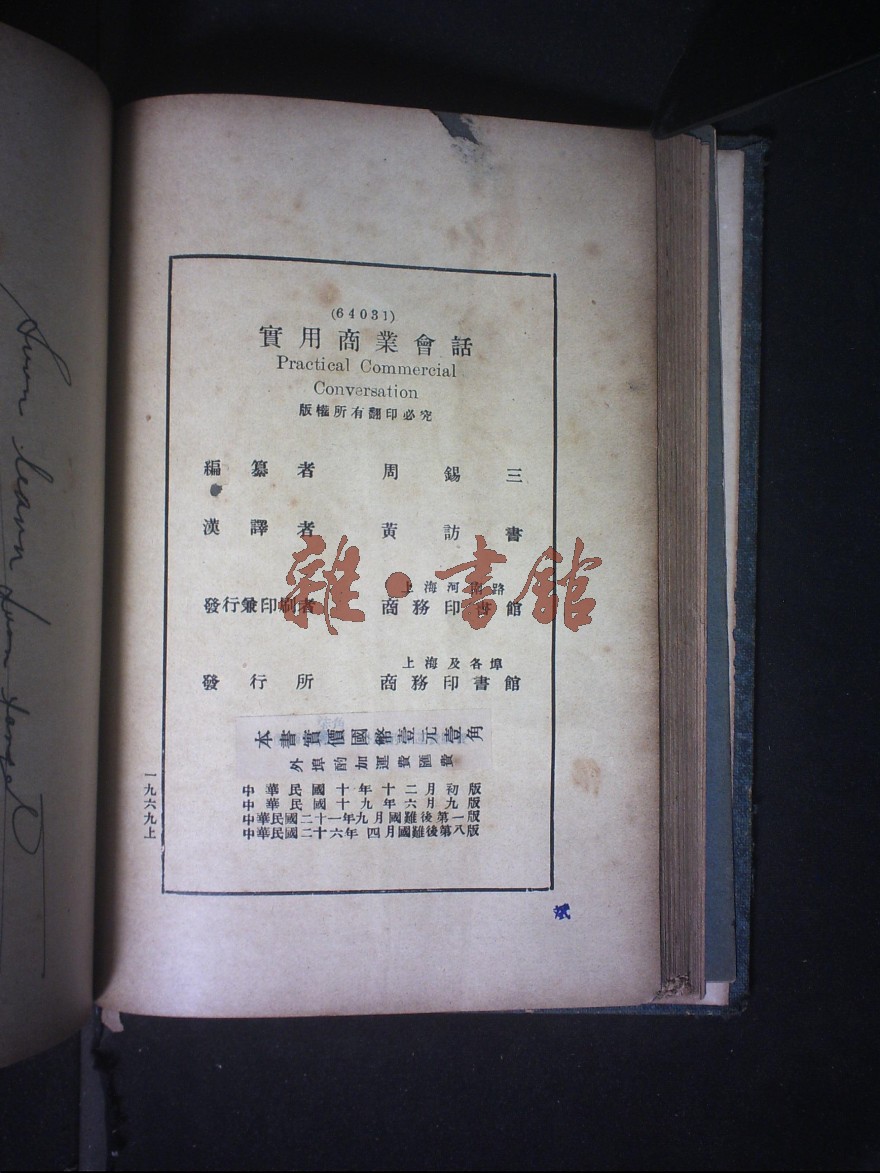 (64031)
實用商業會話
Practical Commercial
Conversation
版權所有翻印必究
編纂者 周錫三
漢譯者 黃訪書
上海河南路
發行兼印刷者 商務印書館
上海及各埠
發行所 商務印書館
本書實價國幣壹元壹角
外埠酌加運費匯費
中華民國十年十二月初版
中華民國十九年六月九版
中華民國二十一年九月國難後第一版
中華民國二十六年四月國難後第八版
一九六九上
雜·書館